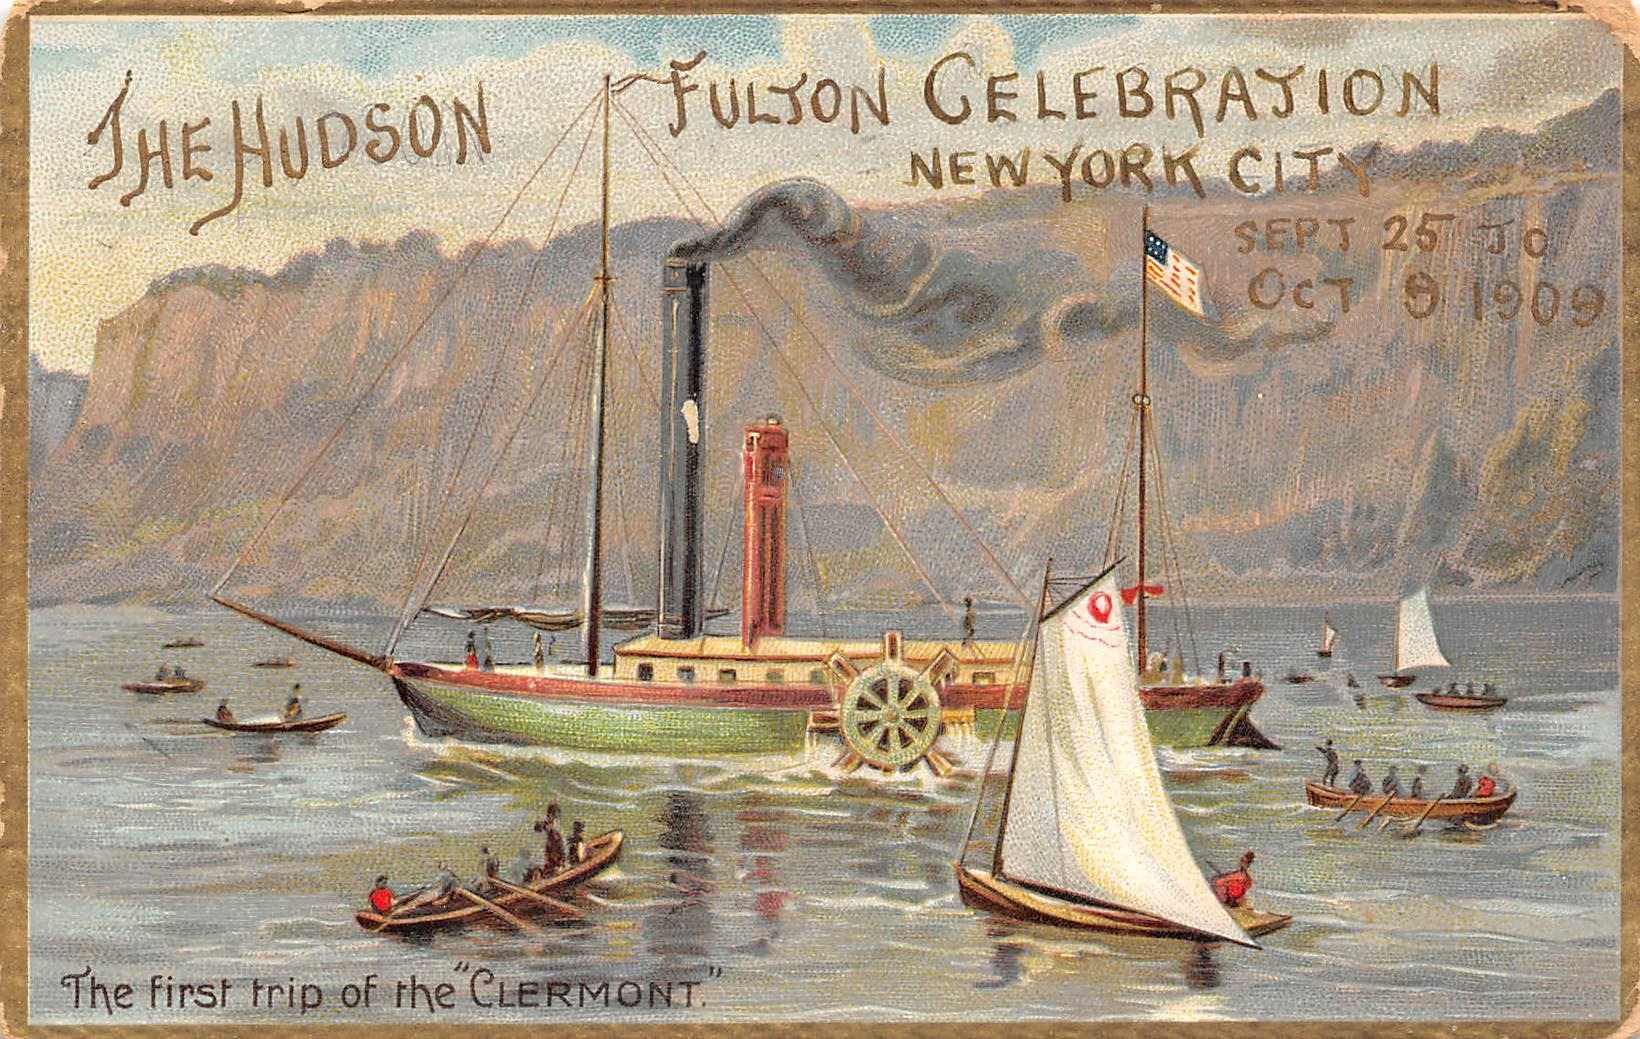 THE HUDSON FULTON CELEBRATION
NEW YORK CITY
SEPT 25 TO
OCT 9 1909
The first trip of the "CLERMONT."